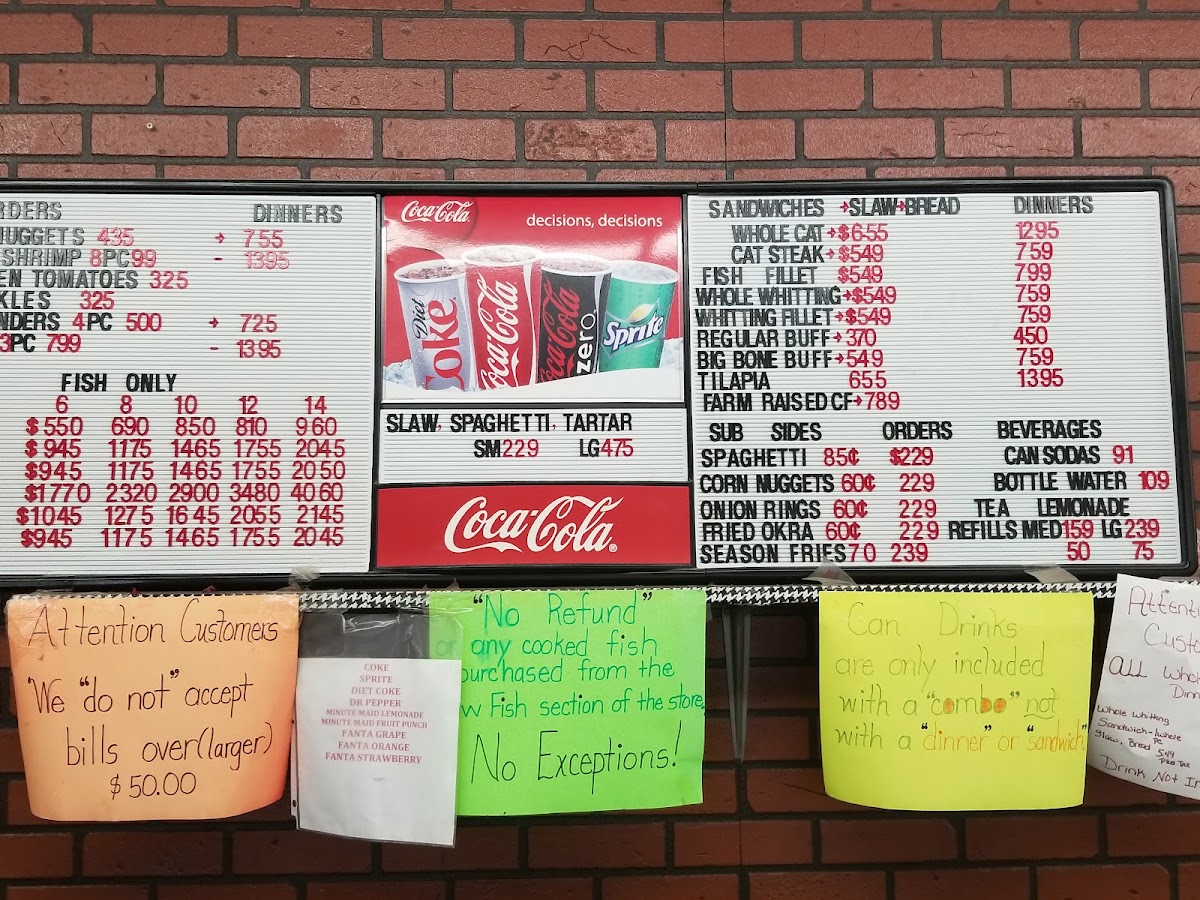 RDERS DINNERS
NUGGETS 435 → 755
SHRIMP 8PC 99 - 1395
EN TOMATOES 325
KLES 325
NDERS 4PC 500 → 725
3PC 799 - 1395
FISH ONLY
6 8 10 12 14
$550 690 850 810 960
$945 1175 1465 1755 2045
$945 1175 1465 1755 2050
$1770 2320 2900 3480 4060
$1045 1275 1645 2055 2145
$945 1175 1465 1755 2045
Coca-Cola
decisions, decisions
Diet Coke
Coca-Cola
Coca-Cola zero
Sprite
SLAW, SPAGHETTI, TARTAR
SM229 LG475
Coca-Cola®
SANDWICHES →SLAW→BREAD DINNERS
WHOLE CAT→$655 1295
CAT STEAK→$549 759
FISH FILLET $549 799
WHOLE WHITTING→$549 759
WHITTING FILLET→$549 759
REGULAR BUFF→370 450
BIG BONE BUFF→549 759
TILAPIA 655 1395
FARM RAISED CF→789
SUB SIDES ORDERS
SPAGHETTI 85¢ $229
CORN NUGGETS 60¢ 229
ONION RINGS 60¢ 229
FRIED OKRA 60¢ 229
SEASON FRIES 70 239
BEVERAGES
CAN SODAS 91
BOTTLE WATER 109
TEA LEMONADE
REFILLS MED159 LG239
50 75
Attention Customers
We "do not" accept
bills over(larger)
$50.00
COKE
SPRITE
DIET COKE
DR PEPPER
MINUTE MAID LEMONADE
MINUTE MAID FRUIT PUNCH
FANTA GRAPE
FANTA ORANGE
FANTA STRAWBERRY
"No Refund"
or any cooked fish
purchased from the
w Fish section of the store.
No Exceptions!
Can Drinks
are only included
with a "combo" not
with a "dinner" or "sandwich"
Attent
Custo
ALL Whol
Din
Whole Whitting
Sandwich-1whole
Slaw, Bread 5.49
Plus Tax
Drink Not In